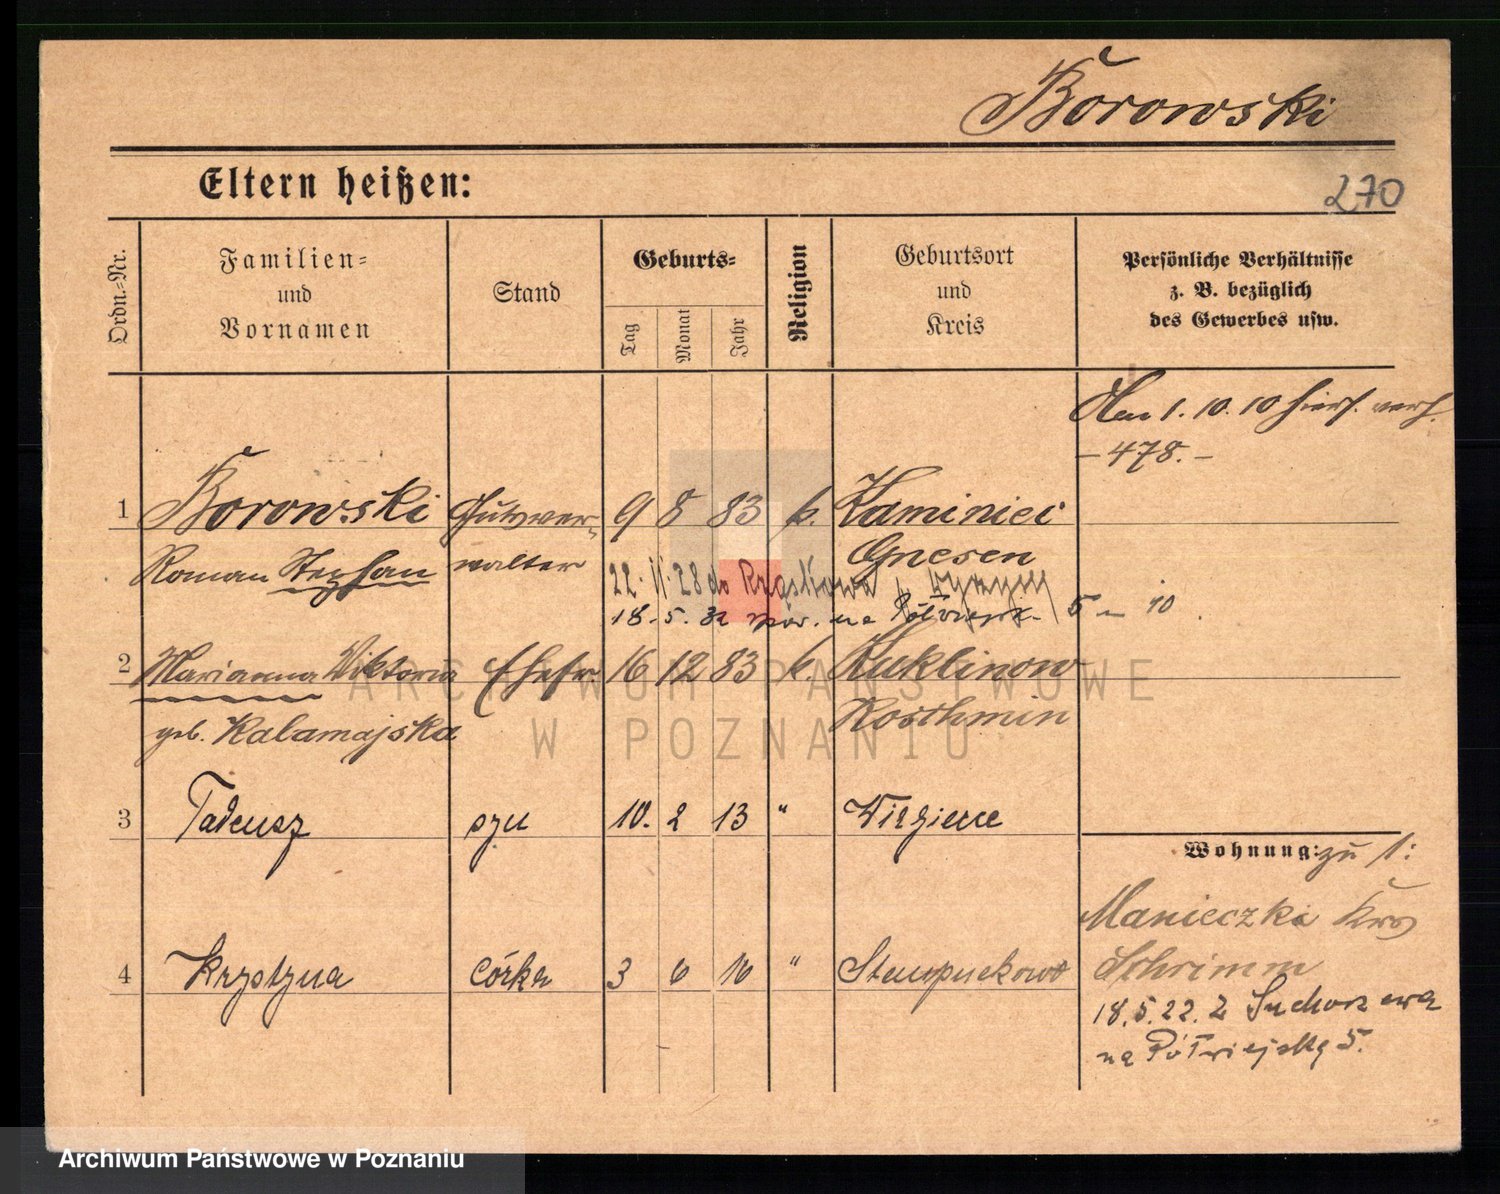 Borowski
Eltern heißen:
270
Ordn.-Nr.
Familien-
und
Vornamen
Stand
Geburts-
Tag
Monat
Jahr
Religion
Geburtsort
und
Kreis
Persönliche Verhältnisse
z. B. bezüglich
des Gewerbes usw.
1. 10. 10
– 478. –
1 Borowski Gutsver- 9 8 83 k. Kaminiec
Roman Stephan walter Gnesen
22. 11. 28 do
18. 5. 32 na 5 – 10
2 Marianna Viktoria Ehefr. 16 12 83 k. Kuklinow
geb. Kalamajska Koschmin
3 Tadeusz syn 10. 2 13 "
Wohnung: zu 1:
Manieczki Krs
Schrimm
4 Krystyna córka 3 6 16 "
18. 5. 22. z
na Półwiejską 5.
ARCHIWUM PAŃSTWOWE
W POZNANIU
Archiwum Państwowe w Poznaniu